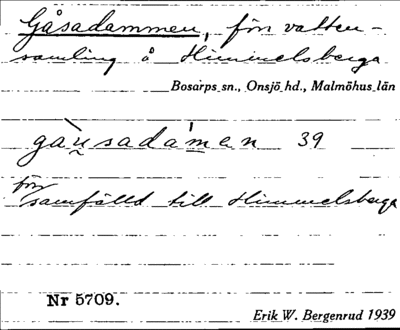 Gåsadammen, förr vatten-
samling å Himmelsberga
Bosarps sn., Onsjö hd., Malmöhus län
gàu̯sadámen 39
förr
samfälld till Himmelsberga
Nr 5709.
Erik W. Bergenrud 1939